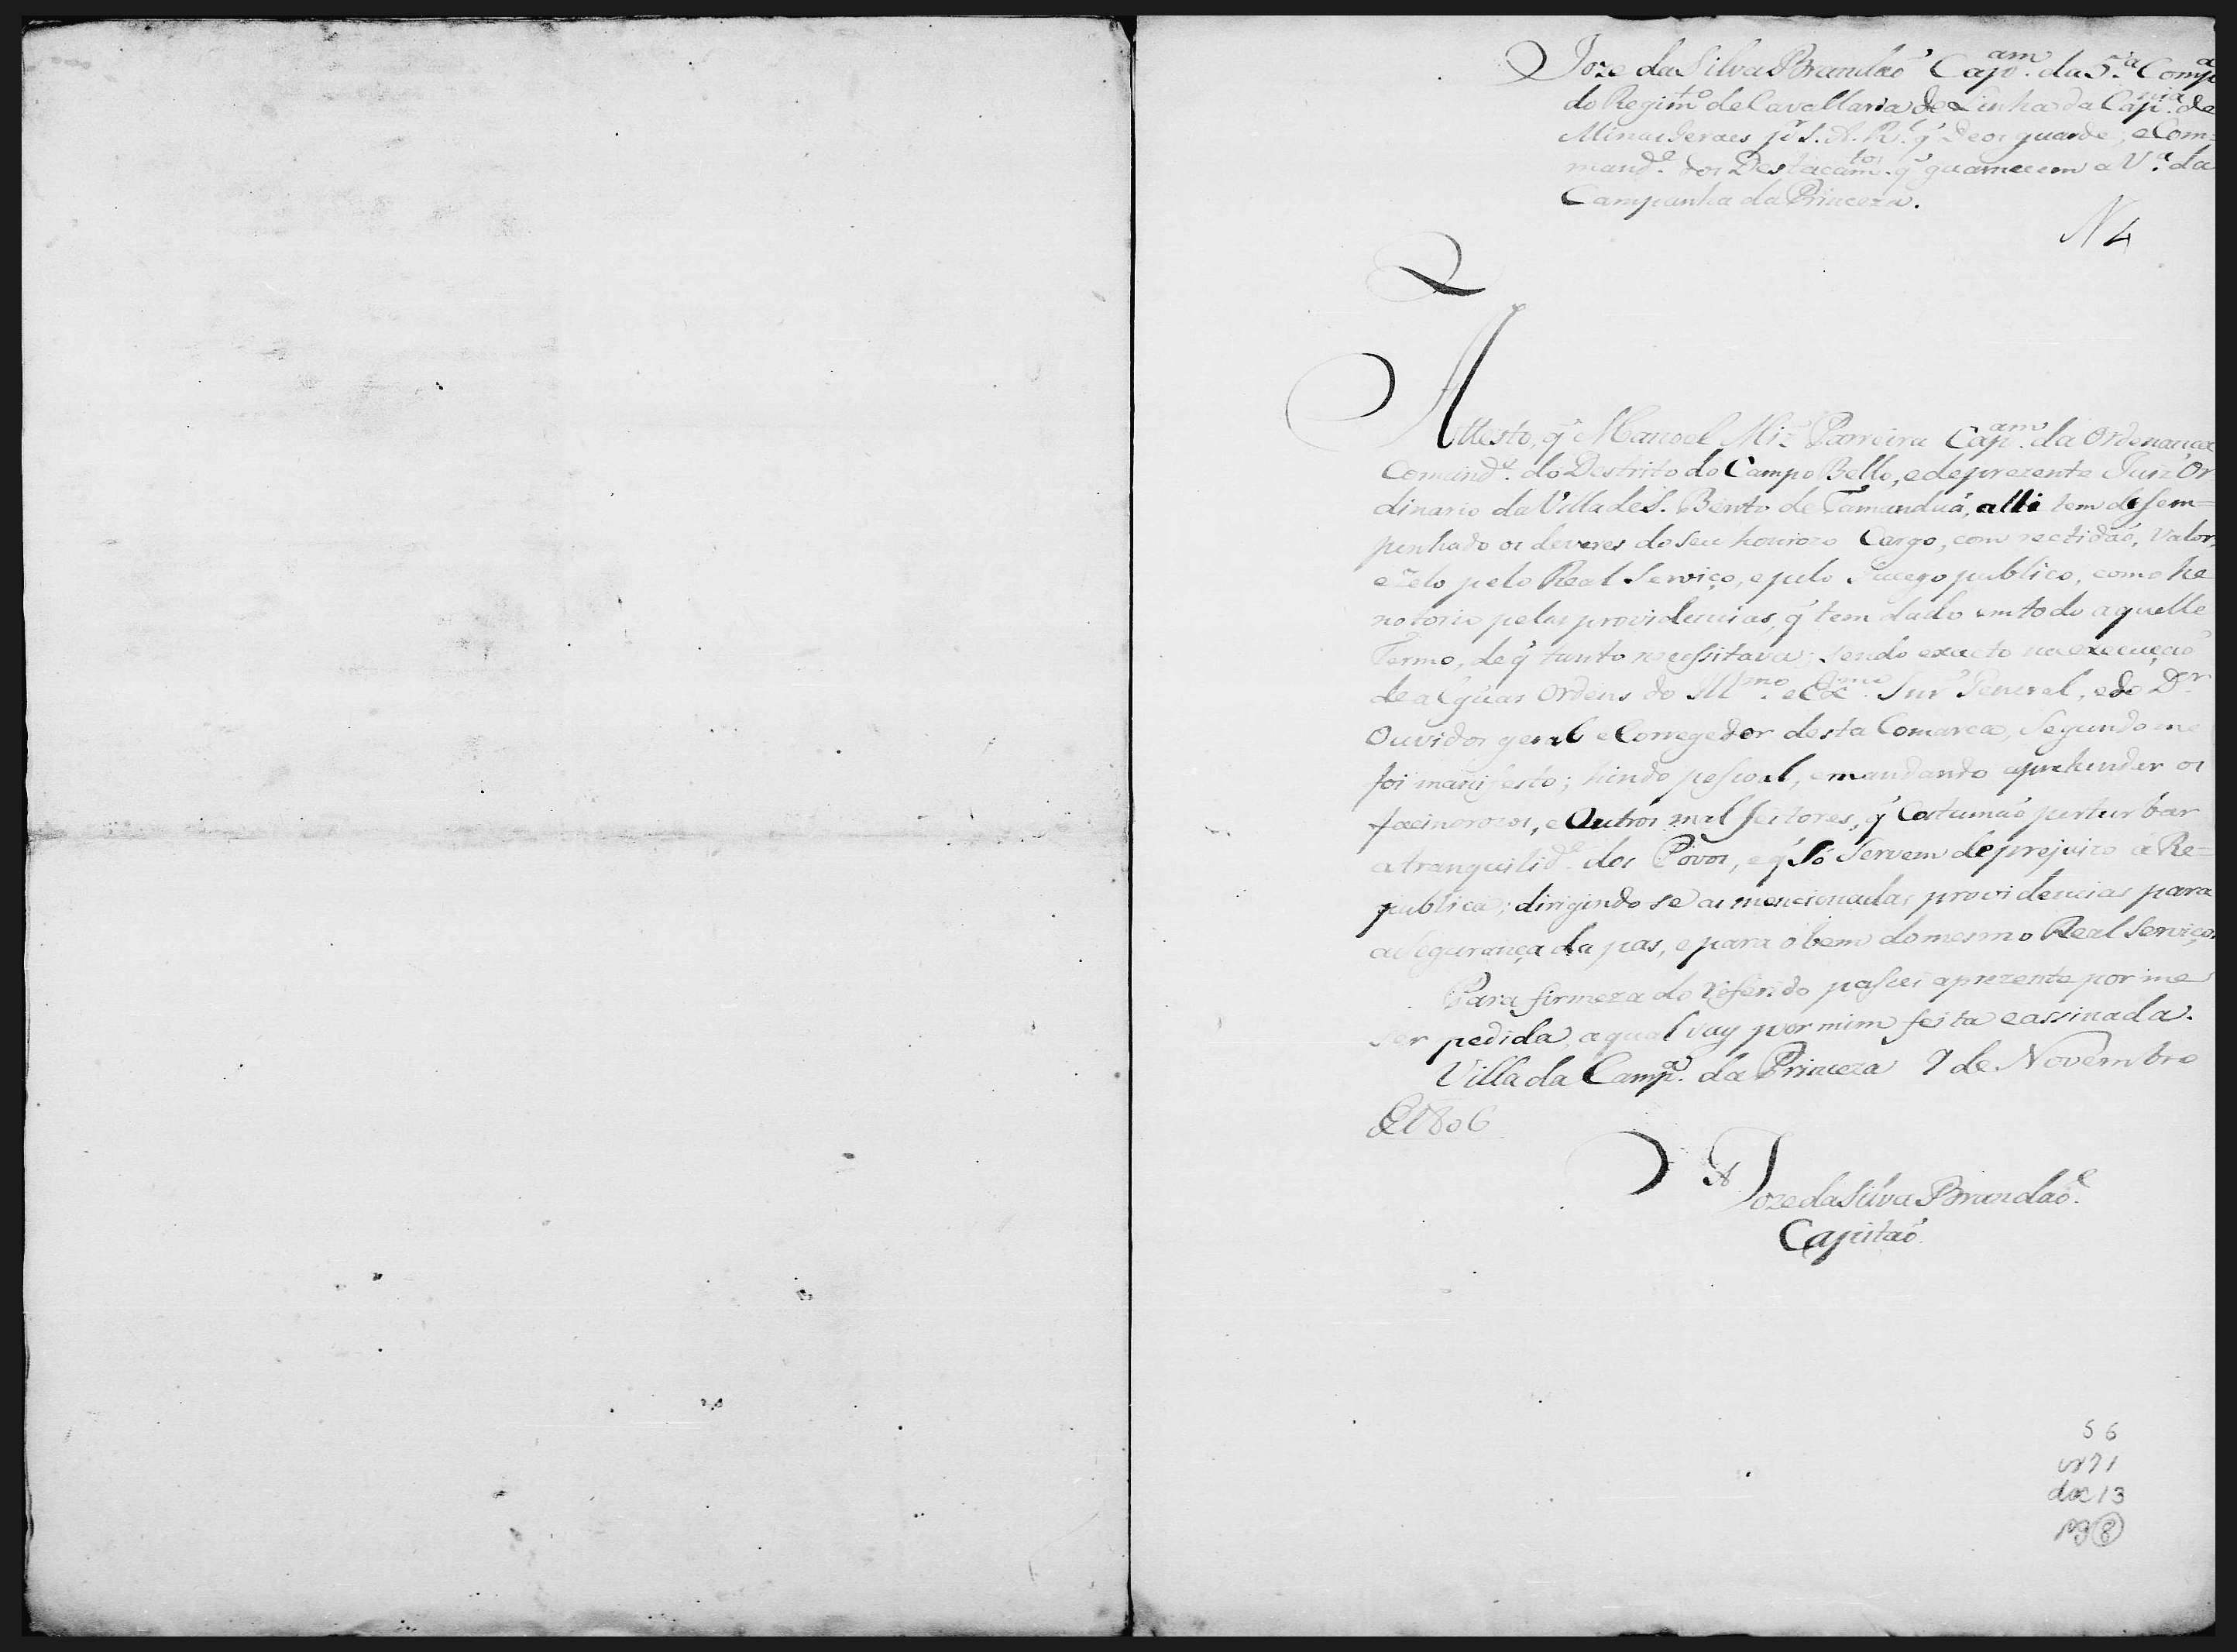 Joze da Silva Brandaõ Cap.am da 5.a Comp.a
do Regim.to de Cavallaria de Linha da Cap.nia de
Minas Geraes p.r S. A. R. q̃ Deos guarde, e Com=
mand.e dos Destacam.tos q̃ guarnecem a V.a da
Campanha da Princeza.
N 4
Attesto, q̃ Manoel Miz Parreira Cap.am da Ordenança
Comand.e do Destrito do Campo Bello, e de prezente Juiz Or
dinario da Villa de S. Bento de Tamanduá, alli tem desem=
penhado os deveres do seu honrozo Cargo, com rectidaõ, valor,
e zelo pelo Real Serviço, e pelo Sucego publico, como he
notorio pelas providencias, q̃ tem dado em todo aquelle
Termo, de q̃ tanto necessitava; sendo exacto na execuçaõ
de alguas Ordens do Ill.mo e Ex.mo Snr General, e do D.r
Ouvidor geral e Corregedor desta Comarca, Segundo me
foi manifesto; hindo pesoal, e mandando aprehender os
facinorozos, e Outros mal feitores, q̃ Costumaõ perturbar
a tranquilid.e dos Povos, e q̃ Só Servem de prejuizo á Re=
publica; dirigindo se as mencionadas providencias para
a Segurança da pas, e para o bem do mesmo Real Serviço.
Para firmeza do referido passei a prezente por me
ser pedida, a qual vay por mim feita e assinada.
Villa da Camp.a da Princeza 9 de Novembro
de 1806
Joze da Silva Brandaõ
Capitaõ
56
vr71
doc 13
pg 8